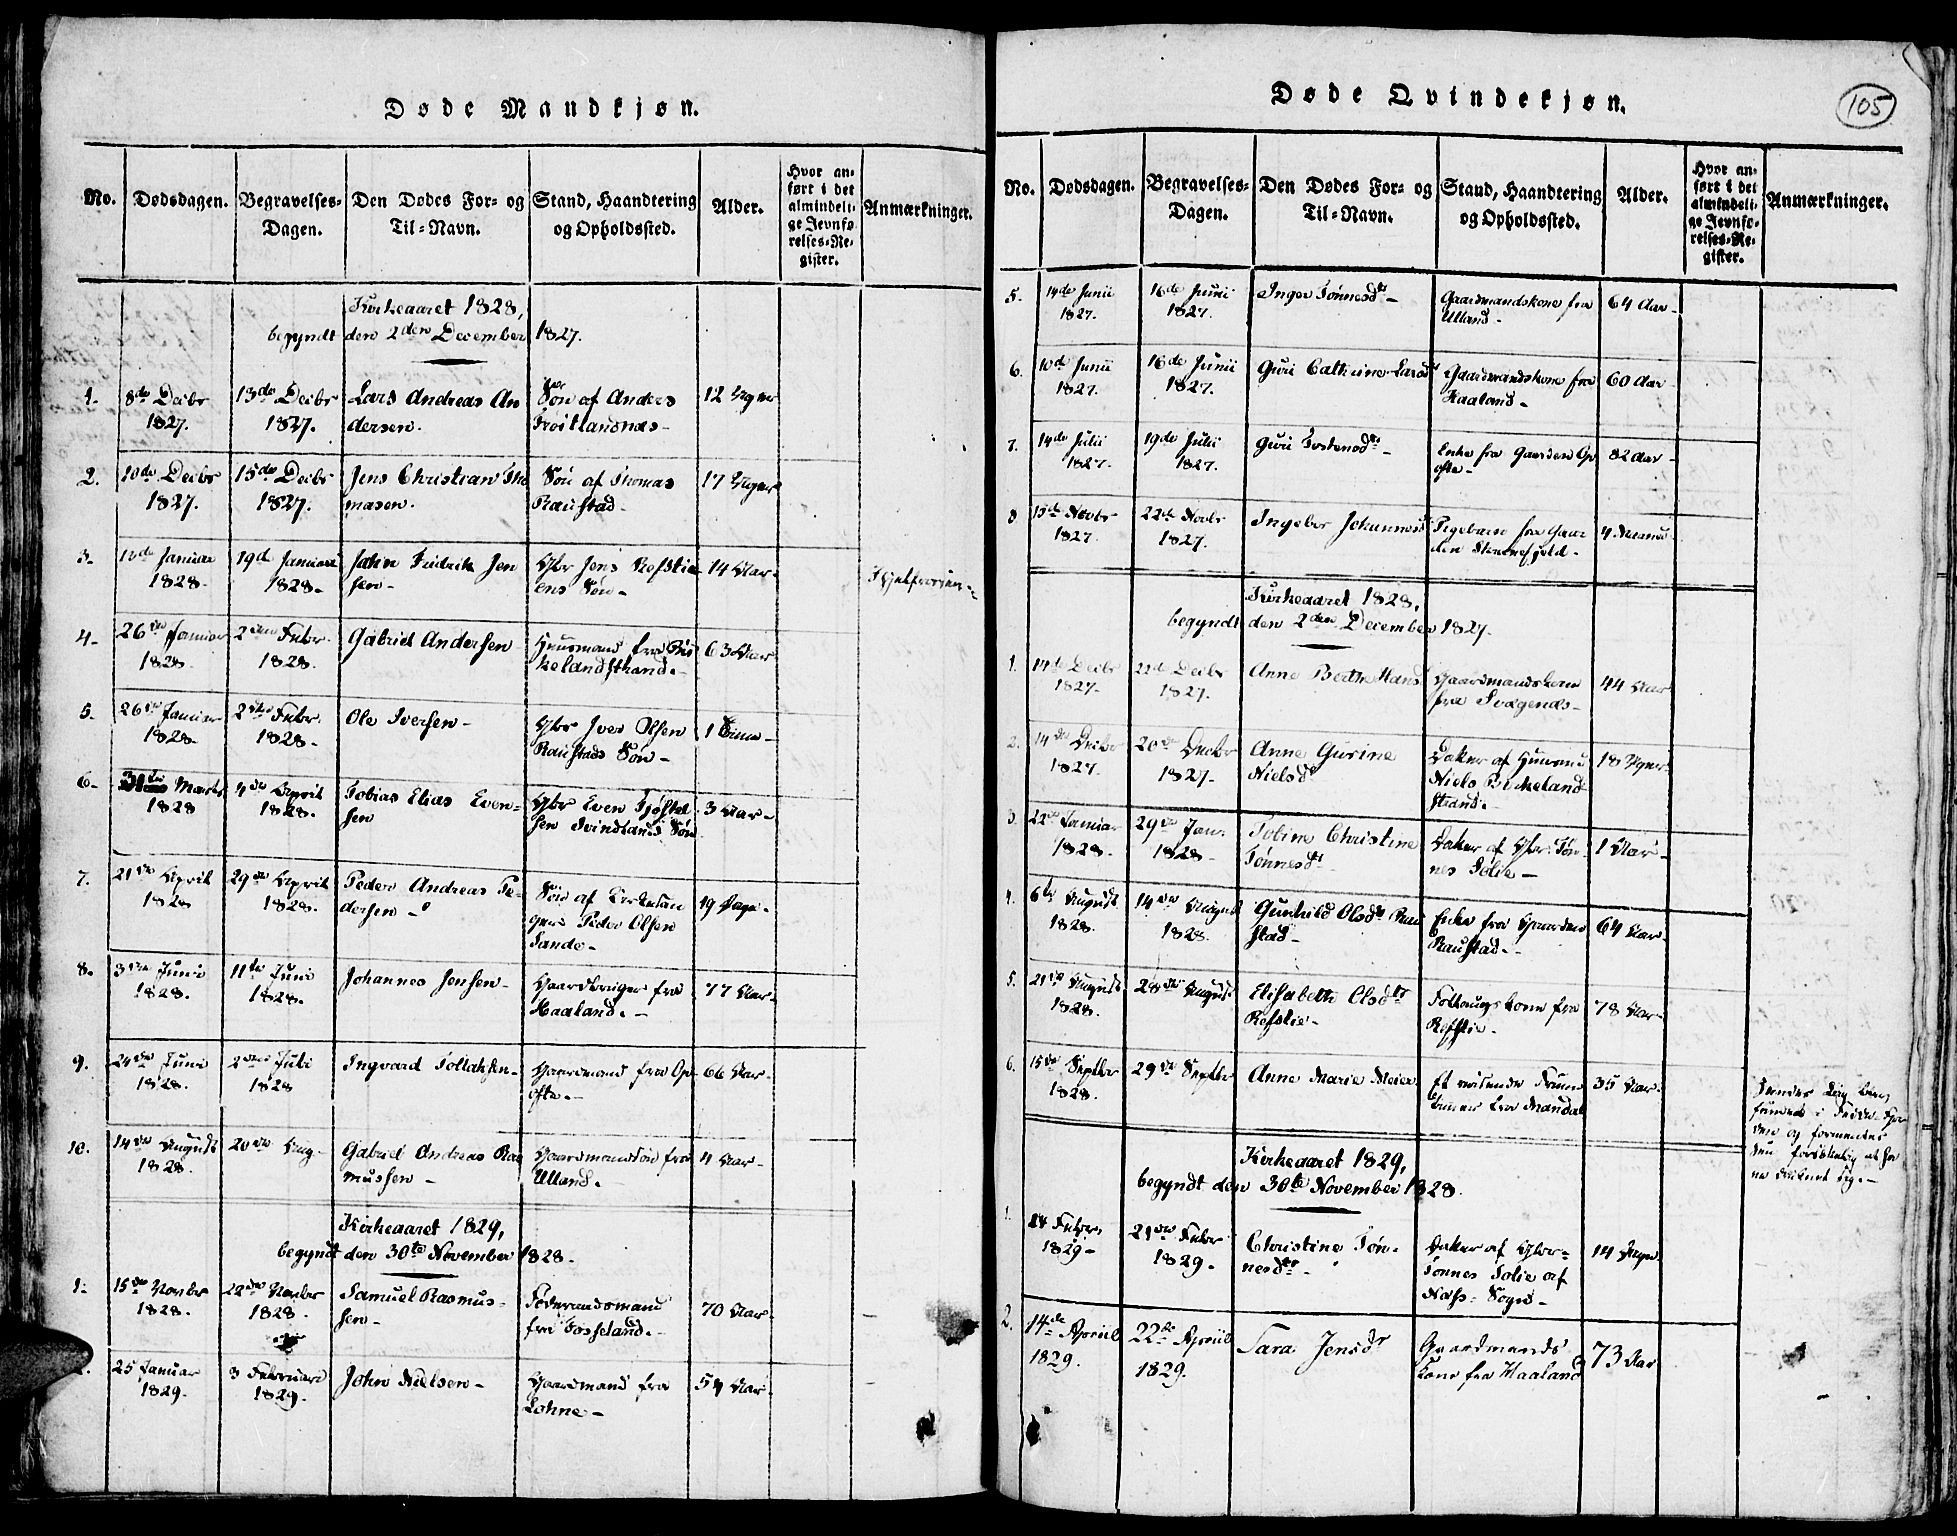 Døde Mandkjøn.
No. Dødsdagen. Begravelses-Dagen. Den Dødes For- og Til-Navn. Stand, Haandtering og Opholdssted. Alder. Hvor anført i det almindelige Jevnførelses-Register. Anmærkninger.
Kirkeaaret 1828,
begyndt den 2den December 1827.
1. 8de Decbr 13de Decbr Lars Andreas An Søn af Anders 12 Uger
1827. 1827. dersen.
2. 10de Decbr 15de Decbr Jens Christian Tho Søn af Thomas 17 Uger
1827. 1827. masen. Raustad.
3. 10de Januar 19de Januar John Fredrik Jen Gbr Jens Refstie 14 Aar.
1828. 1828. sen. ens Søn.
4. 26de Januar 2den Febr. Gabriel Andersen Huusmand fra Bir 63 Aar
1828. 1828. kelandstrand.
5. 26de Januar 2den Febr. Ole Iversen Gbr Iver Olsen 1 Time
1828. 1828. Raustads Søn
6. Marts 4de April Tobias Elias Even= Gbr Even 3 Aar
1828 1828. sen sen Svindland Søn
7. 21de April 29de April Peder Andreas Pe= Søn af Kirkesan 19 Dage.
1828 1828. dersen gere Peder Olsen
Sande.
8. 3de Juni 11te Juni Johannes Jensen Gaardbruger fra 77 Aar.
1828. 1828. Haaland.
9. 24de Juni 2den Juli Ingvard Tollaksen Gaardmand fra Op 66 Aar.
1828. 1828 ofte.
10. 14de August 20de Aug. Gabriel Andreas Ras Gaardmandsøn fra 4 Aar
1828. mussen Ulland.
Kirkeaaret 1829,
begyndt den 30te November 1828.
1. 15de Novbr 22de Novbr Samuel Rasmus- 70 Aar
1828. 1828. sen fra Fosseland.
25 Januar 3 Februari John Nielsen Gaardmand fra 54 Aar
1829. 1829. Lohne
Døde Qvindekjøn.
105
No. Dødsdagen. Begravelses-Dagen. Den Dødes For- og Til-Navn. Stand, Haandtering og Opholdssted. Alder. Hvor anført i det almindelige Jevnførelses-Register. Anmærkninger.
5. 14de Junii 16de Junii Inger Tønnesdtr Gaardmandskone fra 64 Aar
1827. 1827. Ulland
6. 10de Junii 16de Junii Guri Cathrine Larsd Gaardmandskone fra 60 Aar
1827. 1827. Haaland
7. 14de Julii 19de Julii Guri Enke fra Gaarden Op 82 Aar
1827. 1827. ofte
8 15de Novbr 22de Novbr Ingebor Johannesd Pigebarn fra Gaar 4 Maaned
1827. 1827. den
Kirkeaaret 1828,
begyndt den 2den December 1827.
1. 14de Decbr 22de Decbr Anne Berthe Hansd Gaardmandskone 44 Aar
1827. 1827. fra
2. 14de Decbr 20de Decbr Anne Gurine Datter af Huusmd 18 Uger
1827. 1827. Nielsd Niels Birkeland
strand.
3. 22de Januar 29de Jan. Tobine Christine Datter af Gbr. Tøn 1 Aar
1828. 1828 Tønnesdt nes Solie
4. 6te August 14de August Gunhild Olsdtr Rau Enke fra Gaarden 64 Aar
1828. 1828. stad Raustad.
5. 21de August 28de August Elisabeth Olsdtr kone fra 78 Aar
1828. Refstie Refstie.
6. 15de Septbr 29de Septbr Anne Marie Meier Et reisende Fruen 35 Aar.
1828. timer fra Mandal
Kirkeaaret 1829,
begyndt den 30te November 1828.
1. 14 Febr. 21de Febr Christine Tøn- Datter af Gbr 14 Dage
1829 1829. nesdtr Tønnes Solie af
Næss Sogn
2. 14de Apriil 22de Apriil Sara Jensdr Gaardmands 73 Aar
1829. 1829. Kone fra Haaland